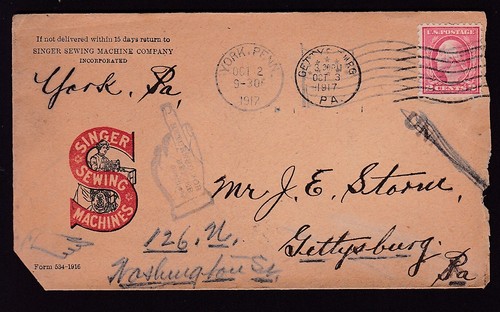 If not delivered within 15 days return to
SINGER SEWING MACHINE COMPANY
INCORPORATED
York, Pa,
YORK, PENN.
OCT 2
9-30P
1917
GETTYSBURG
OCT 3
1917
PA.
U.S. POSTAGE
2 CENTS 2
SINGER
SEWING
MACHINES
Mr J. E. Storm,
126. N.
Gettysburg.
Washington St,
Pa
Form 534-1916